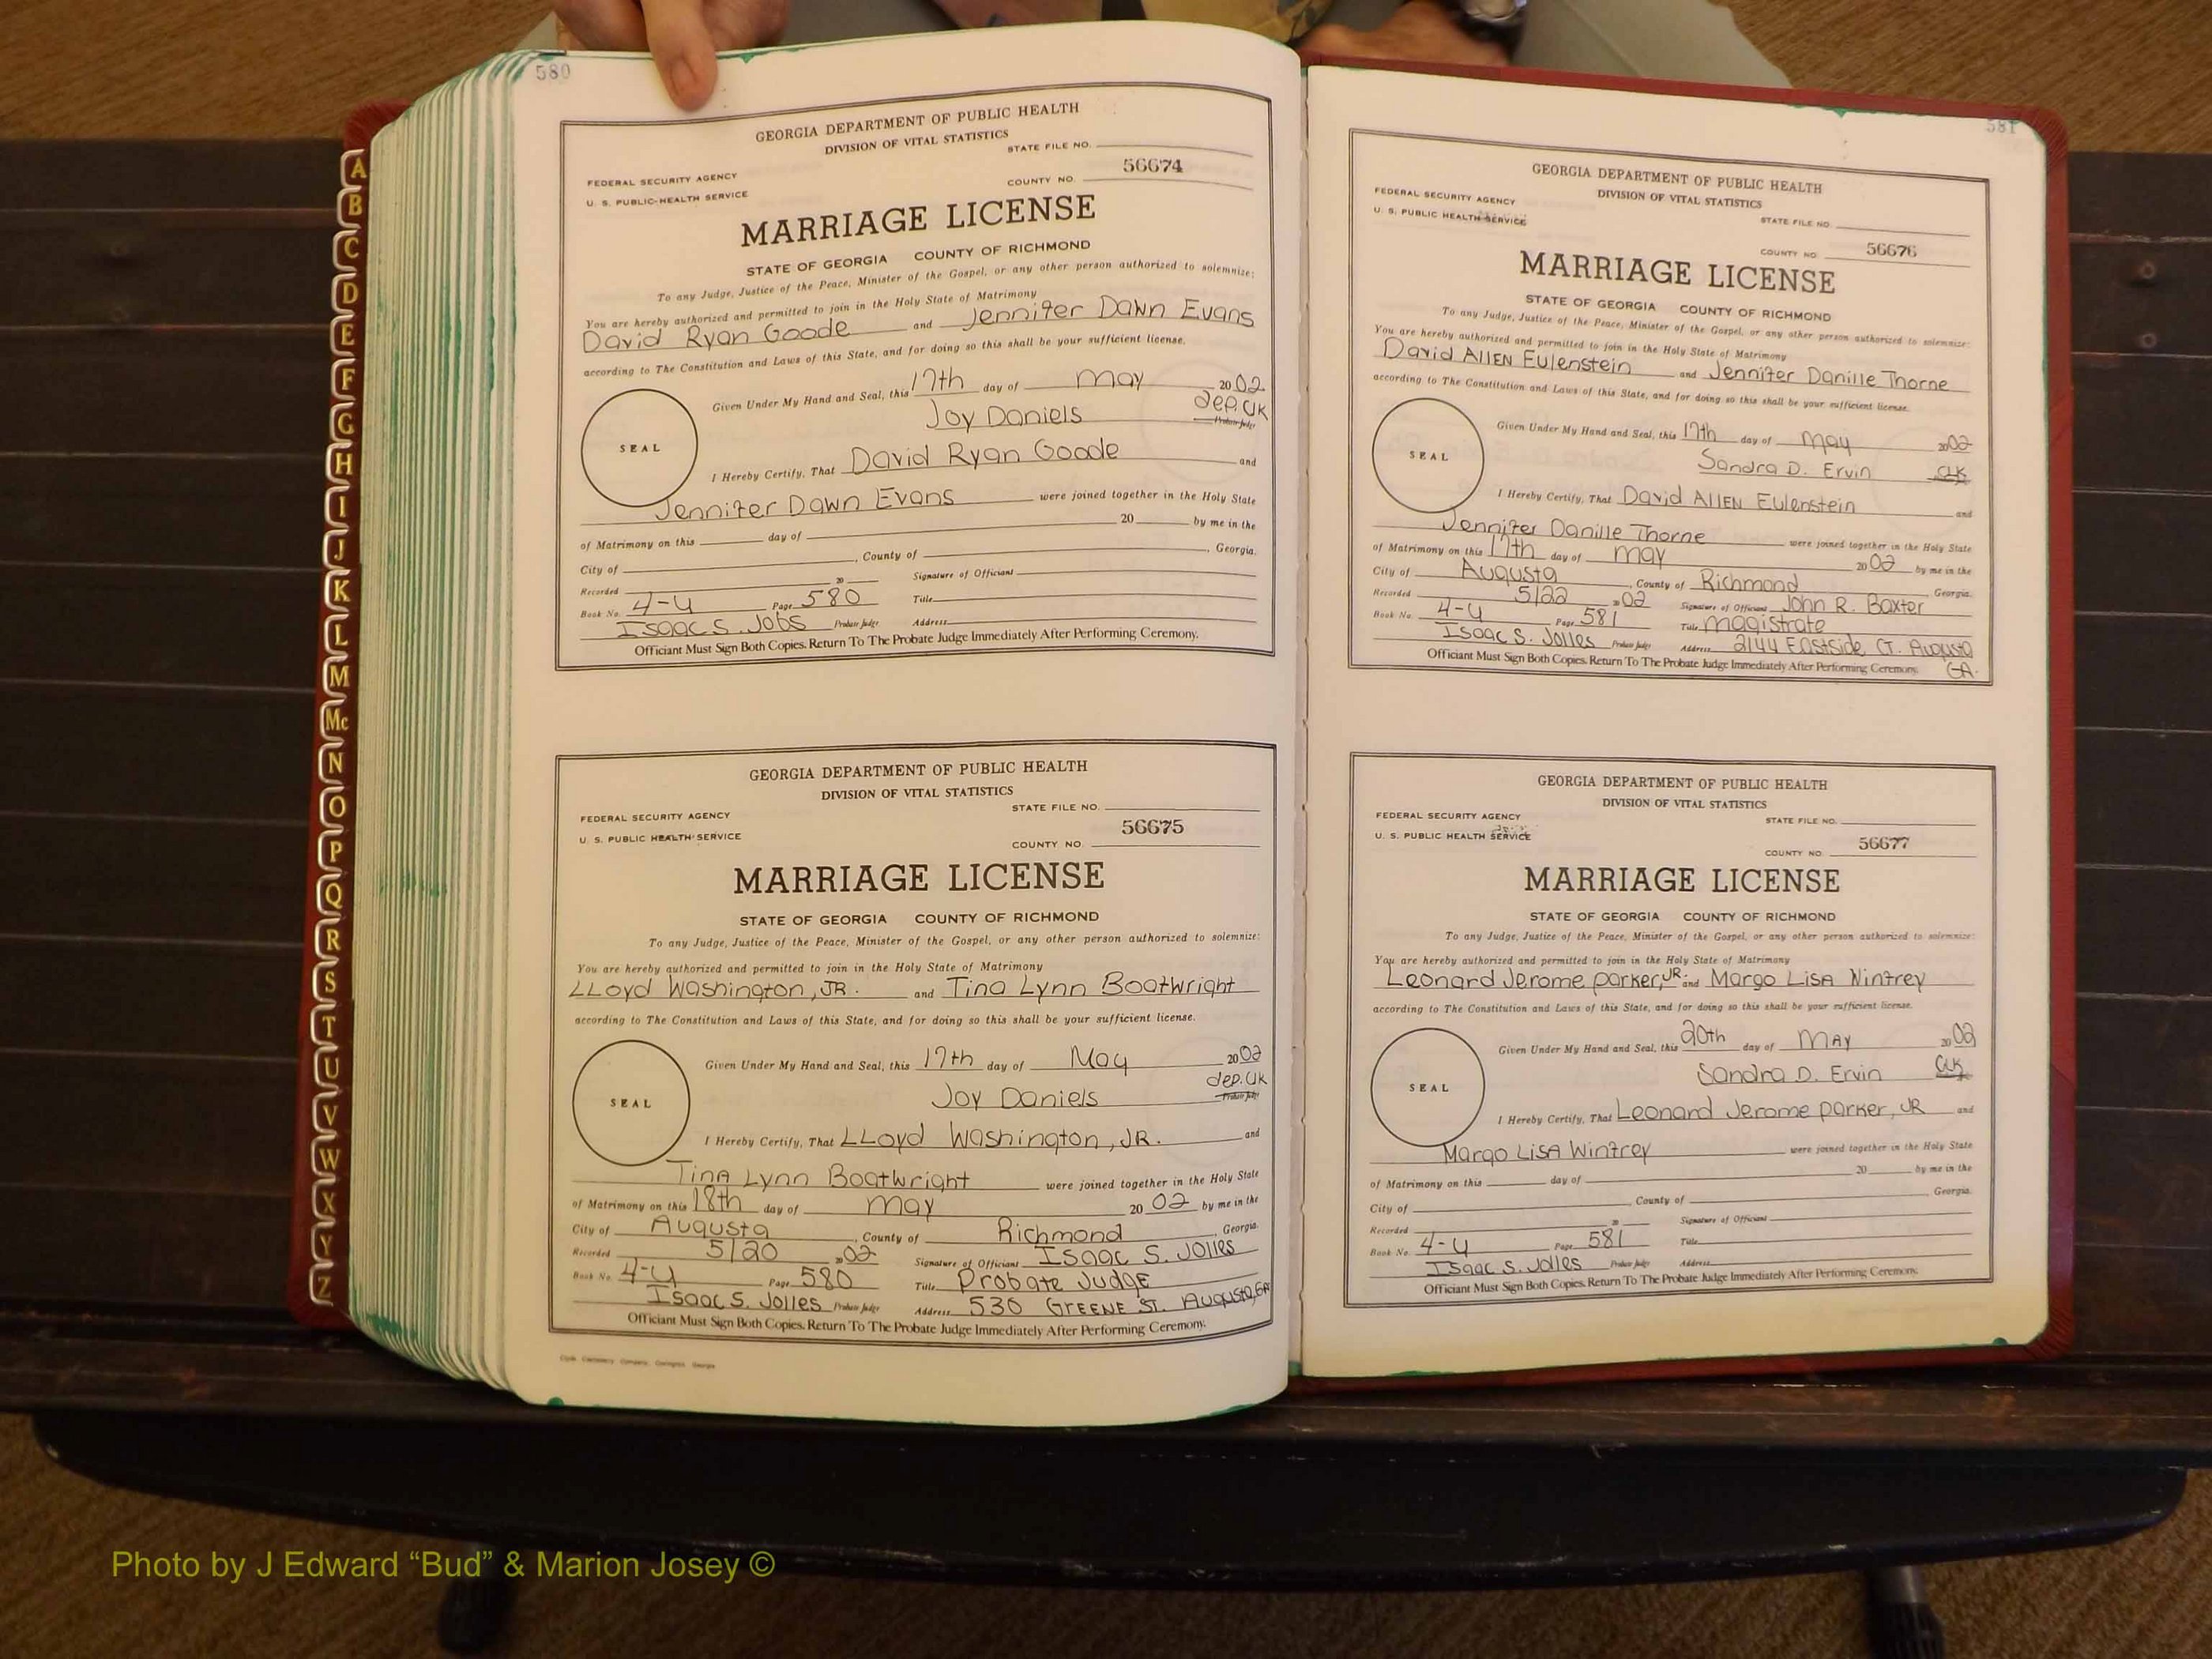 580
GEORGIA DEPARTMENT OF PUBLIC HEALTH
DIVISION OF VITAL STATISTICS
STATE FILE NO.
FEDERAL SECURITY AGENCY
U. S. PUBLIC-HEALTH SERVICE
COUNTY NO. 56674
MARRIAGE LICENSE
STATE OF GEORGIA COUNTY OF RICHMOND
To any Judge, Justice of the Peace, Minister of the Gospel, or any other person authorized to solemnize:
You are hereby authorized and permitted to join in the Holy State of Matrimony
David Ryan Goode and Jennifer Dawn Evans
according to The Constitution and Laws of this State, and for doing so this shall be your sufficient license.
Given Under My Hand and Seal, this 17th day of May 2002
Joy Daniels dep. Clk
Probate Judge
SEAL
I Hereby Certify, That David Ryan Goode and
Jennifer Dawn Evans were joined together in the Holy State
of Matrimony on this day of 20 by me in the
City of , County of , Georgia.
Recorded 20 Signature of Officiant
Book No. 4-U Page 580 Title
Isaac S. Jobs Probate Judge Address
Officiant Must Sign Both Copies. Return To The Probate Judge Immediately After Performing Ceremony.
GEORGIA DEPARTMENT OF PUBLIC HEALTH
DIVISION OF VITAL STATISTICS
STATE FILE NO.
FEDERAL SECURITY AGENCY
U. S. PUBLIC HEALTH SERVICE
COUNTY NO. 56675
MARRIAGE LICENSE
STATE OF GEORGIA COUNTY OF RICHMOND
To any Judge, Justice of the Peace, Minister of the Gospel, or any other person authorized to solemnize:
You are hereby authorized and permitted to join in the Holy State of Matrimony
LLoyd Washington, JR. and Tina Lynn Boatwright
according to The Constitution and Laws of this State, and for doing so this shall be your sufficient license.
Given Under My Hand and Seal, this 17th day of May 2002
Joy Daniels dep. Clk
Probate Judge
SEAL
I Hereby Certify, That LLoyd Washington, JR. and
Tina Lynn Boatwright were joined together in the Holy State
of Matrimony on this 18th day of May 20 02 by me in the
City of Augusta, County of Richmond, Georgia.
Recorded 5/20 02 Signature of Officiant Isaac S. Jolles
Book No. 4-U Page 580 Title Probate Judge
Isaac S. Jolles Probate Judge Address 530 GREENE ST. Augusta, GA
Officiant Must Sign Both Copies. Return To The Probate Judge Immediately After Performing Ceremony.
581
GEORGIA DEPARTMENT OF PUBLIC HEALTH
DIVISION OF VITAL STATISTICS
FEDERAL SECURITY AGENCY
U. S. PUBLIC HEALTH SERVICE
STATE FILE NO.
COUNTY NO. 56676
MARRIAGE LICENSE
STATE OF GEORGIA COUNTY OF RICHMOND
To any Judge, Justice of the Peace, Minister of the Gospel, or any other person authorized to solemnize:
You are hereby authorized and permitted to join in the Holy State of Matrimony
David ALLEN Eulenstein and Jennifer Danille Thorne
according to The Constitution and Laws of this State, and for doing so this shall be your sufficient license.
Given Under My Hand and Seal, this 17th day of May 2002
Sandra D. Ervin CLK
SEAL
I Hereby Certify, That David ALLEN Eulenstein and
Jennifer Danille Thorne were joined together in the Holy State
of Matrimony on this 17th day of May 2002 by me in the
City of Augusta, County of Richmond Georgia.
Recorded 5/22 2002 Signature of Officiant John R. Baxter
Book No. 4-U Page 581 Title Magistrate
Isaac S. Jolles Probate Judge Address 2144 Eastside CT. Augusta
GA.
Officiant Must Sign Both Copies. Return To The Probate Judge Immediately After Performing Ceremony.
GEORGIA DEPARTMENT OF PUBLIC HEALTH
DIVISION OF VITAL STATISTICS
FEDERAL SECURITY AGENCY
STATE FILE NO.
U. S. PUBLIC HEALTH SERVICE
COUNTY NO. 56677
MARRIAGE LICENSE
STATE OF GEORGIA COUNTY OF RICHMOND
To any Judge, Justice of the Peace, Minister of the Gospel, or any other person authorized to solemnize:
You are hereby authorized and permitted to join in the Holy State of Matrimony
Leonard Jerome Parker, JR. and Margo LiSA Winfrey
according to The Constitution and Laws of this State, and for doing so this shall be your sufficient license.
Given Under My Hand and Seal, this 20th day of MAY 2002
Sandra D. Ervin CLK
SEAL
I Hereby Certify, That Leonard Jerome Parker, JR and
Margo LiSA Winfrey were joined together in the Holy State
of Matrimony on this day of 20 by me in the
City of , County of Georgia.
Recorded 20 Signature of Officiant
Book No. 4-U Page 581 Title
Isaac S. Jolles Probate Judge Address
Officiant Must Sign Both Copies. Return To The Probate Judge Immediately After Performing Ceremony.
A
B
C
D
E
F
G
H
I
J
K
L
M
Mc
N
O
P
Q
R
S
T
U
V
W
X
Y
Z
Photo by J Edward “Bud” & Marion Josey ©